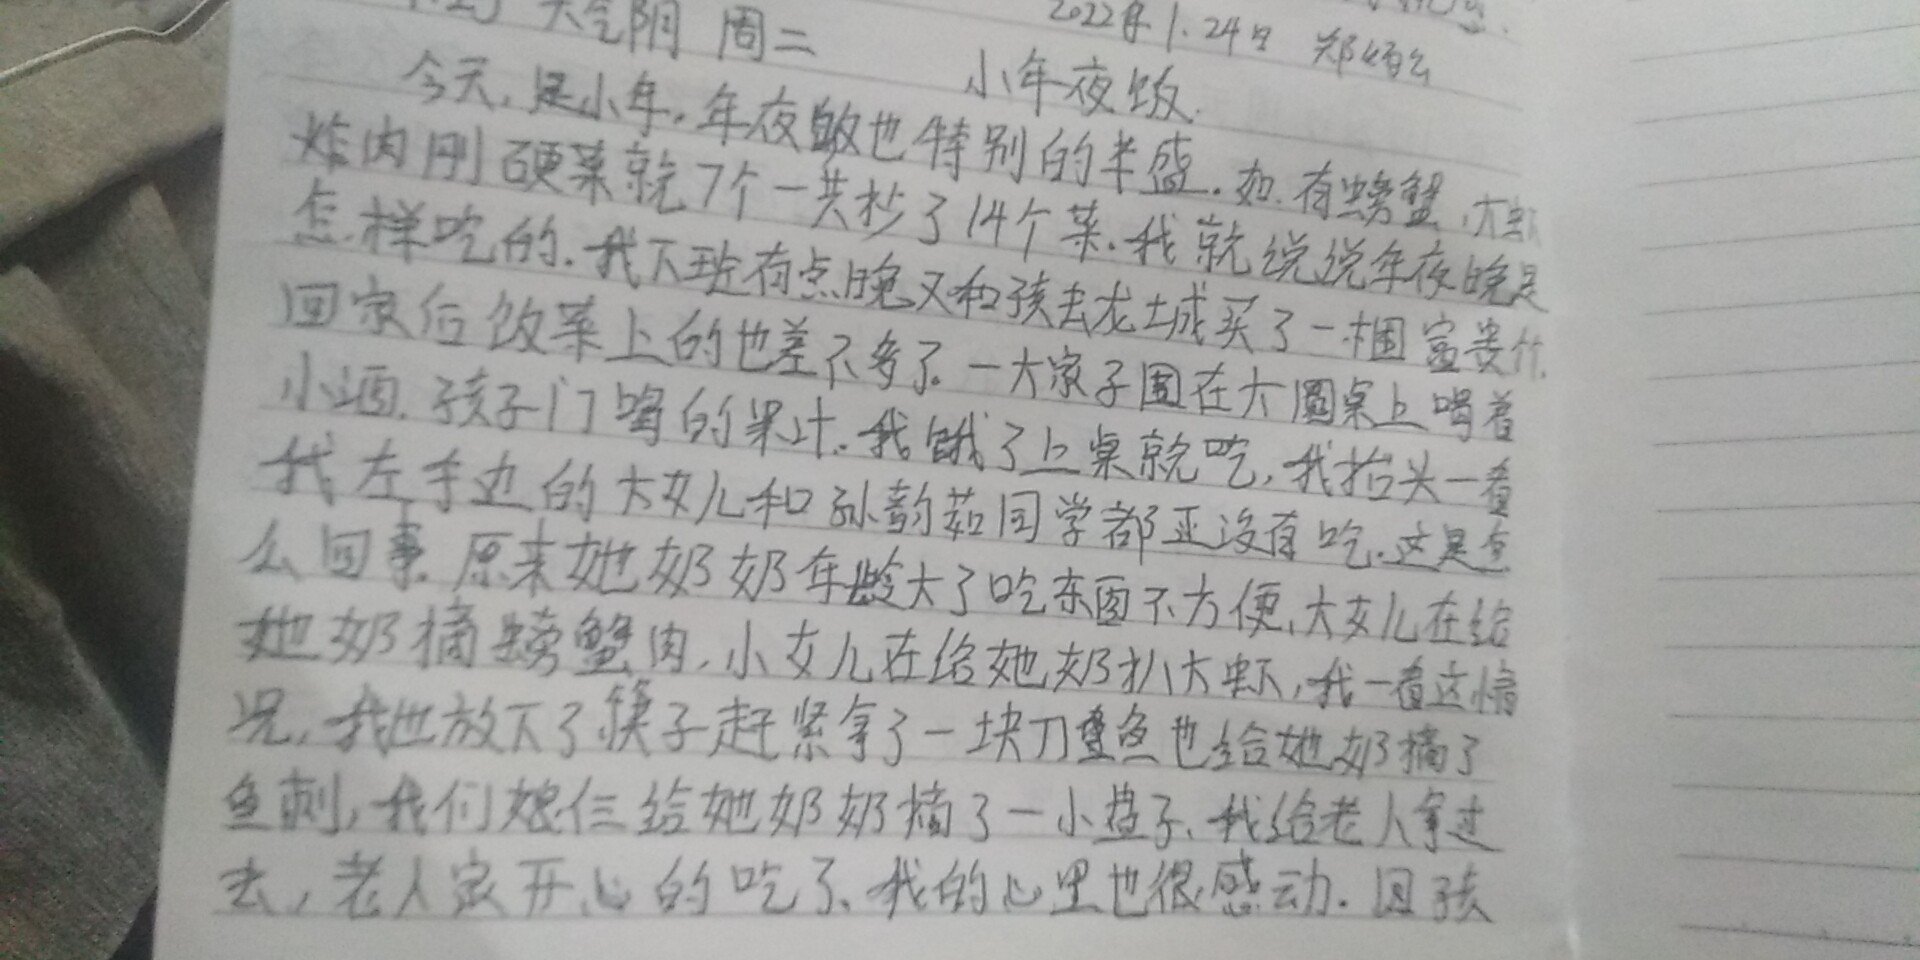 天气阴 周二
2022年1.24日
小年夜饭.
今天,是小年,年夜飯也特别的丰盛.如.有螃蟹,大虾
炸肉刚硬菜就7个一共抄了14个菜.我就说说年夜晚是
怎样吃的.我下班有点晚又和孩去龙土成买了一梱富贵竹.
回家后饭菜上的也差不多了.一大家子围在大圆桌上喝着
小酒.孩子门喝的果汁.我饿了上桌就吃,我抬头一看
我左手边的大女儿和孙韵茹同学都还没有吃.这是怎
么回事.原来她奶奶年龄大了吃东西不方便,大女儿在给
她奶摘螃蟹肉,小女儿在给她奶扒大虾,我一看这情
况,我也放下了筷子赶紧拿了一块刀鱼也给她奶摘了
鱼刺,我们娘仨给她奶奶摘了一小盘子,我给老人拿过
去,老人家开心的吃了,我的心里也很感动.因孩